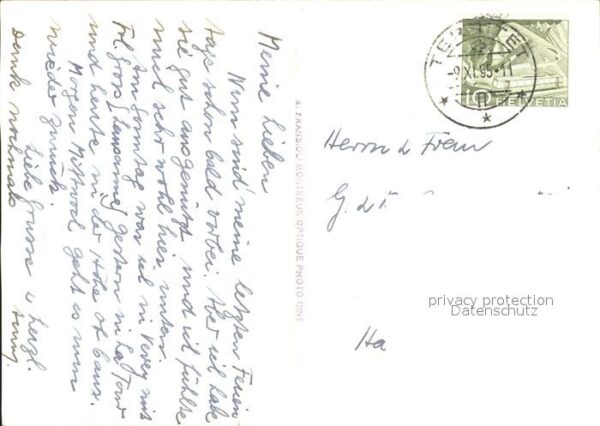 Meine Lieben
Nun sind meine letzten Ferien-
tage schon bald vorbei. Aber ich habe
sie gut ausgenützt und ich fühlte
mich sehr wohl hier unten.
Am Sonntag war ich in Vevey mit
Frl. Gross (Lausanne) gestern in La Tour
und heute in der Höhe ob Caux.
Morgen Mittwoch geht es nun
wieder zurück.
Liebe Grüsse u herzl.
dank nochmals
R. FRANSIOLI MONTREUX OPTIQUE PHOTO CINE
TERRITET
-9.XI.55-11
10 HELVETIA
Herrn & Frau
G.
privacy protection
Datenschutz
Ha